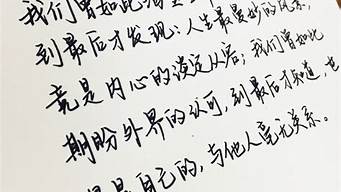 我们曾如此
到最后才发现：人生最曼妙的风景，
竟是内心的淡定从容；我们曾如此
期盼外界的认可，到最后才知道，
是自己的，与他人毫无关系。